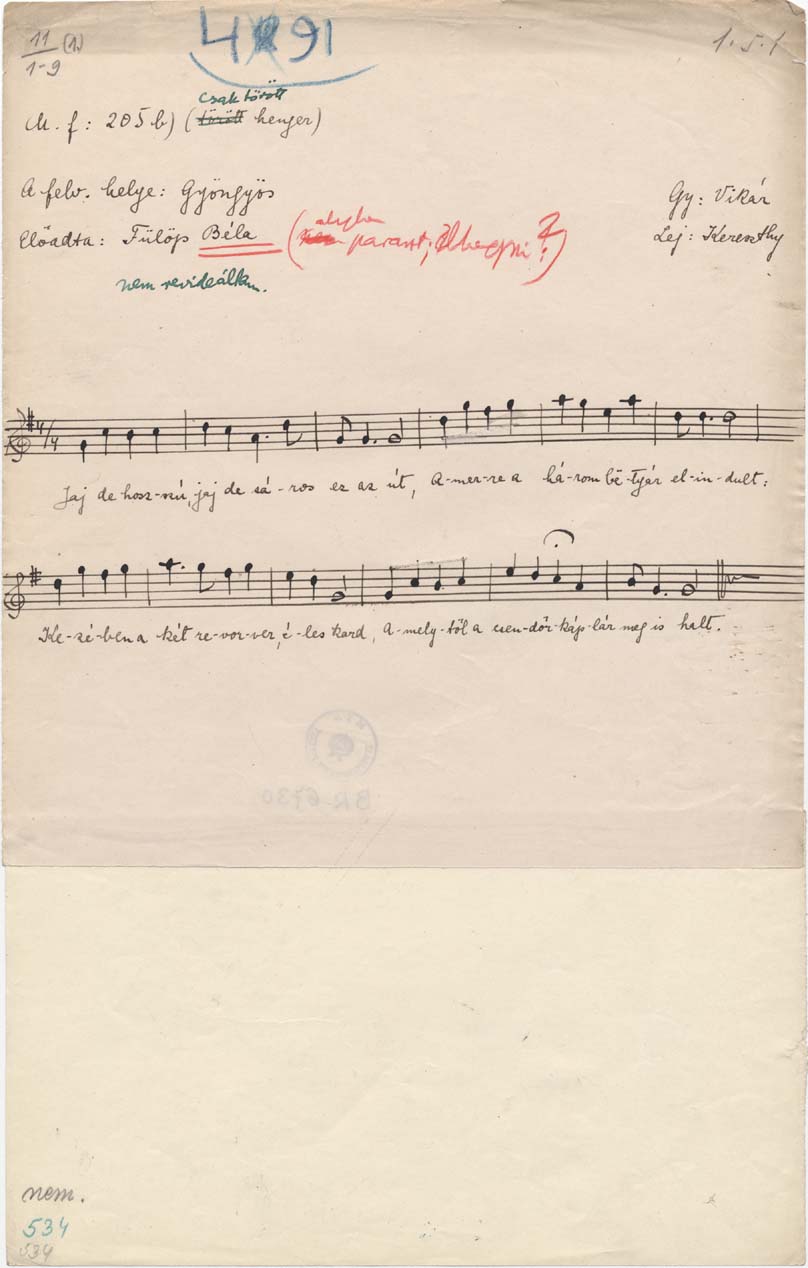 11 (1.)
1-9
4 91
1.5.1
csak törött
M. f: 205 b) (törött henger)
A felv. helye: Gyöngyös
Gy: Vikár
Előadta: Fülöp Béla
Lej: Kereszthy
nem revideáltam.
4/4
Jaj de hosz-szú, jaj de sá-ros ez az út, A-mer-re a há-rom be-tyár el-in-dult:
Ke-zé-ben a két re-vor-ver, é-les kard, A-mely-től a csen-dőr-káp-lár meg is halt.
BR 6730
nem.
534
534